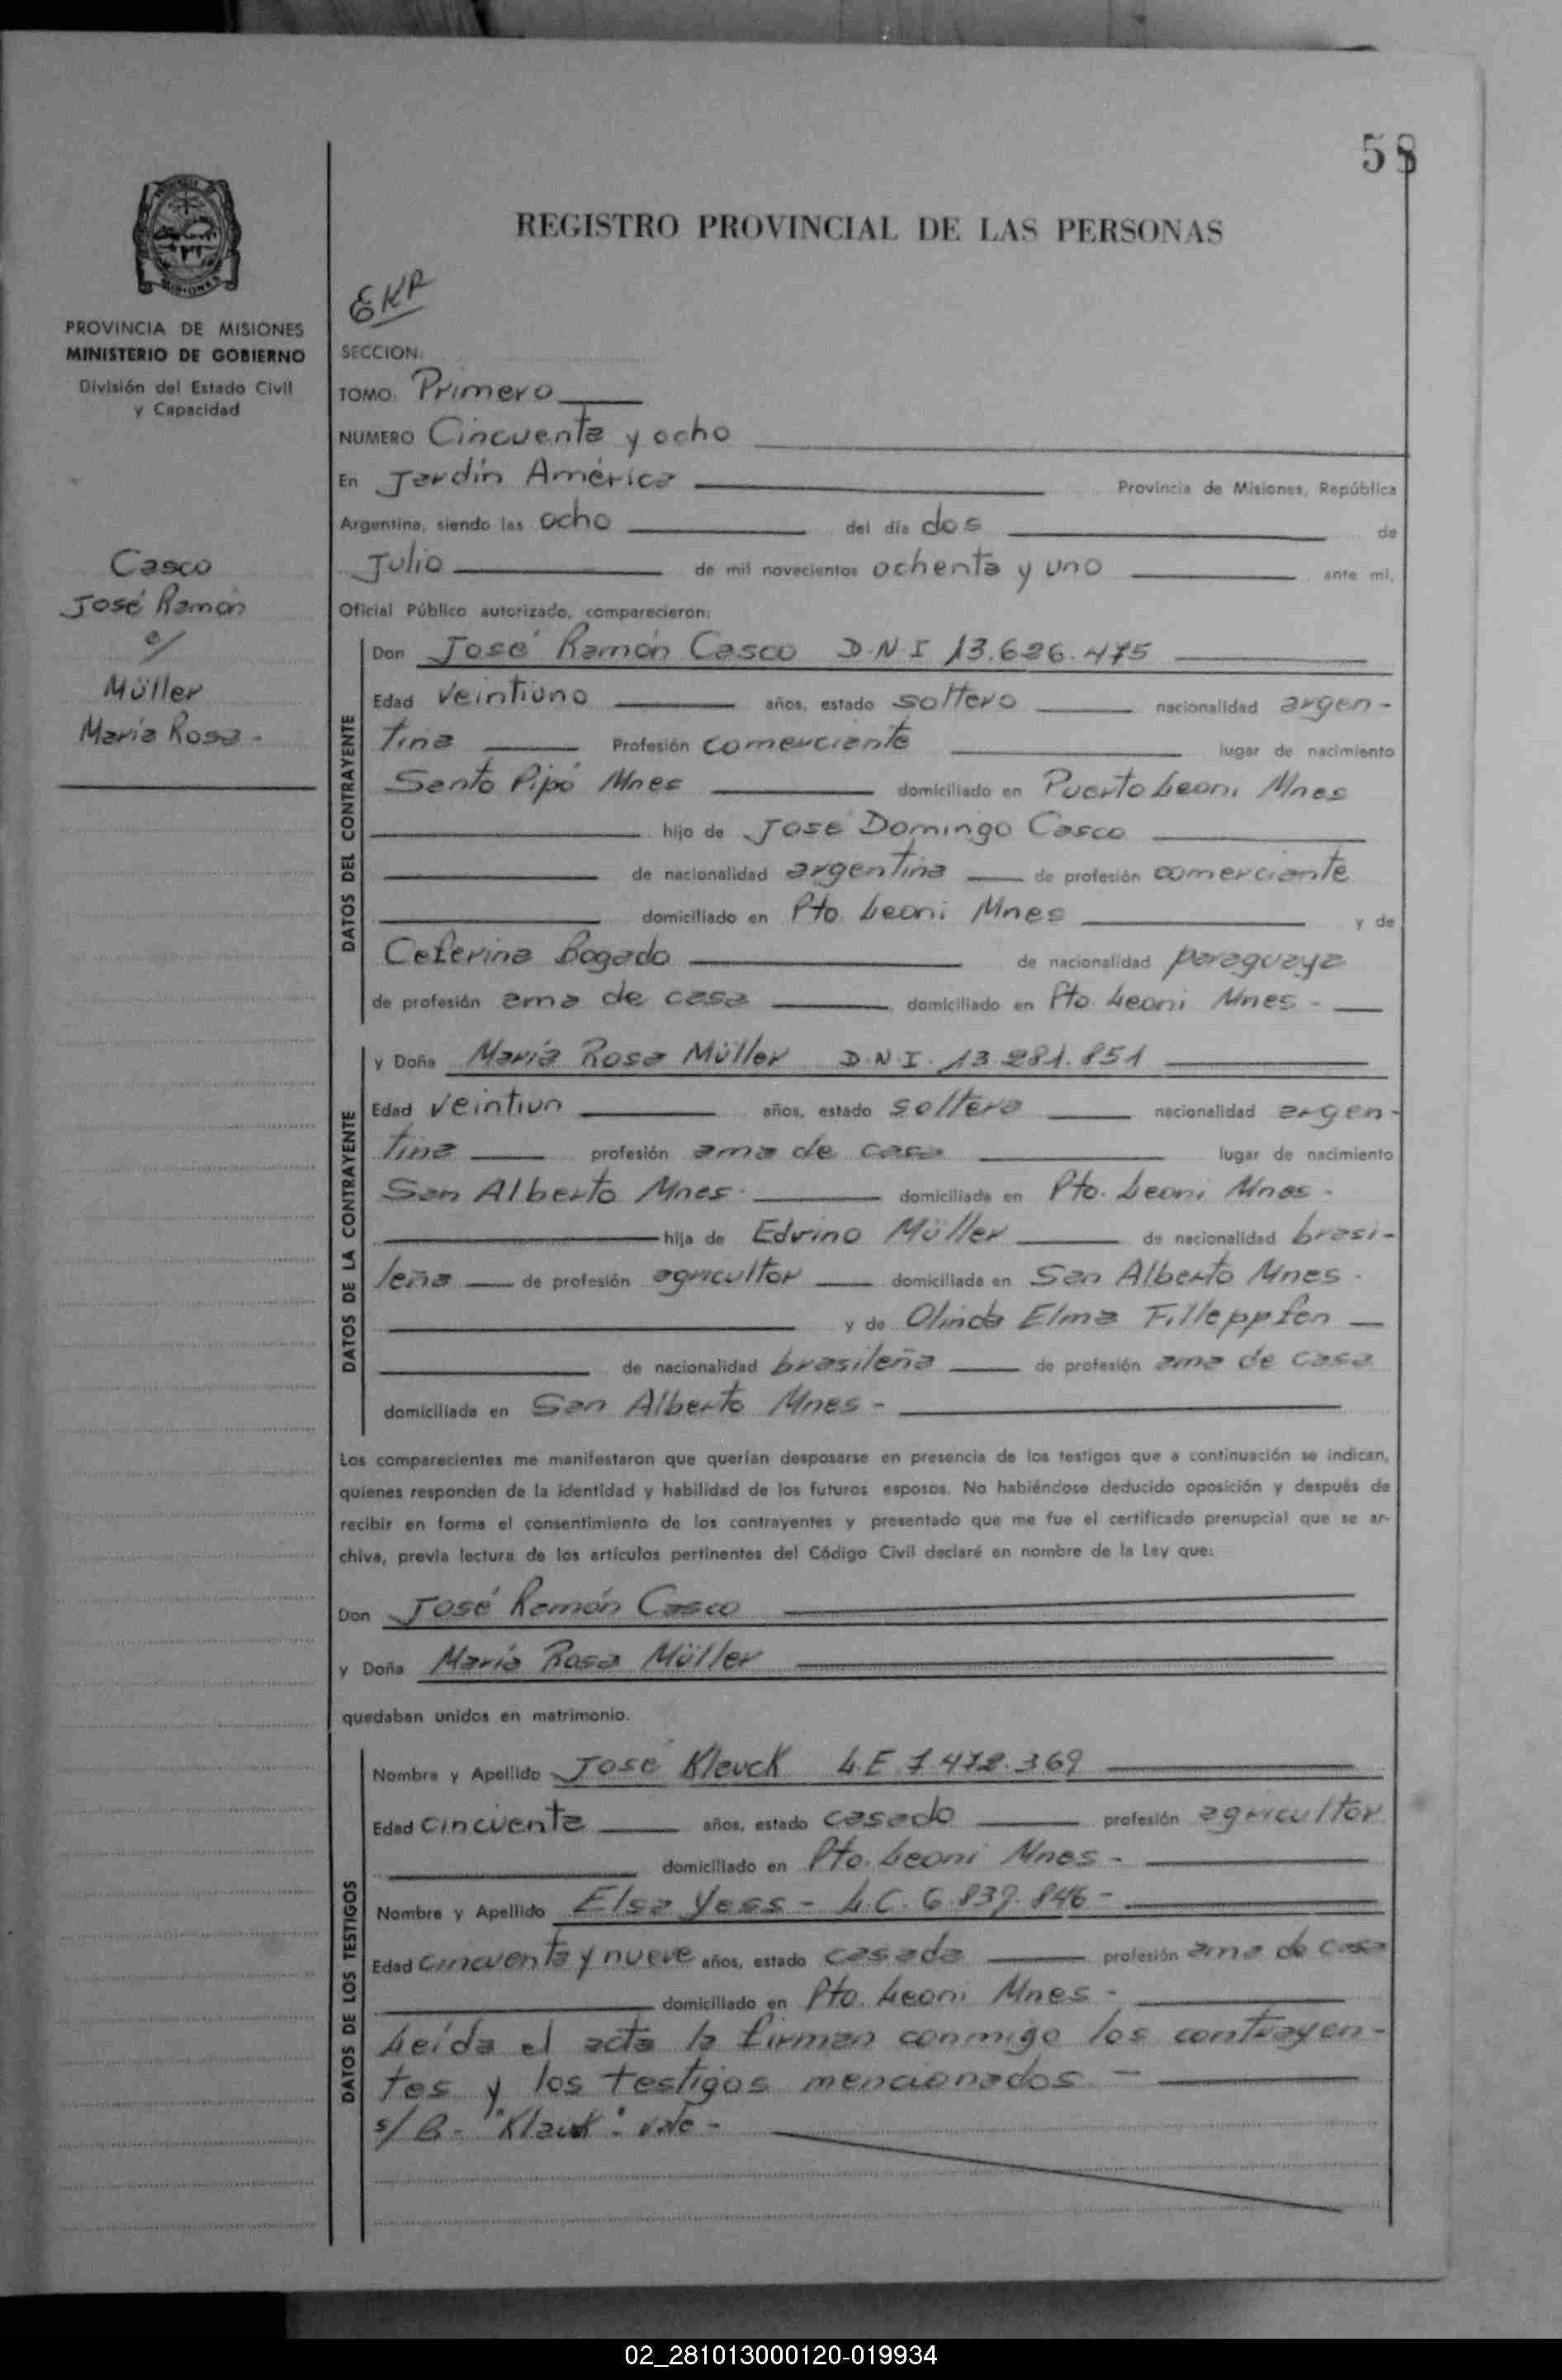 58
REGISTRO PROVINCIAL DE LAS PERSONAS
EKR
PROVINCIA DE MISIONES
MINISTERIO DE GOBIERNO
División del Estado Civil
y Capacidad
Casco
José Ramón
c/
Müller
María Rosa -
SECCION:
TOMO: Primero
NUMERO Cincuenta y ocho
En Jardín América Provincia de Misiones, República
Argentina, siendo las ocho del día dos de
Julio de mil novecientos ochenta y uno ante mi,
Oficial Público autorizado, comparecieron:
DATOS DEL CONTRAYENTE
Don José Ramón Casco D.N.I 13.636.475
Edad veintiuno años, estado soltero nacionalidad argen-
tina Profesión comerciante lugar de nacimiento
Santo Pipó Mnes domiciliado en Puerto Leoni Mnes
hijo de José Domingo Casco
de nacionalidad argentina de profesión comerciante
domiciliado en Pto. Leoni Mnes y de
Ceferina Bogado de nacionalidad paraguaya
de profesión ama de casa domiciliado en Pto. Leoni Mnes -
DATOS DE LA CONTRAYENTE
y Doña María Rosa Müller D.N.I. 13.281.851
Edad veintiun años, estado soltera nacionalidad argen-
tina profesión ama de casa lugar de nacimiento
San Alberto Mnes. domiciliada en Pto. Leoni Mnes -
hija de Edvino Müller de nacionalidad brasi-
leña de profesión agricultor domiciliada en San Alberto Mnes -
y de Olinda Elma Filleppfen
de nacionalidad brasileña de profesión ama de casa
domiciliada en San Alberto Mnes -
Los comparecientes me manifestaron que querían desposarse en presencia de los testigos que a continuación se indican,
quienes responden de la identidad y habilidad de los futuros esposos. No habiéndose deducido oposición y después de
recibir en forma el consentimiento de los contrayentes y presentado que me fue el certificado prenupcial que se ar-
chiva, previa lectura de los artículos pertinentes del Código Civil declaré en nombre de la Ley que:
Don José Ramón Casco
y Doña María Rosa Müller
quedaban unidos en matrimonio.
DATOS DE LOS TESTIGOS
Nombre y Apellido José Klauck L.E 7.472.369
Edad cincuenta años, estado casado profesión agricultor
domiciliado en Pto. Leoni Mnes -
Nombre y Apellido Elsa Yess - L.C. 6.839.846 -
Edad cincuenta y nueve años, estado casada profesión ama de casa
domiciliado en Pto. Leoni Mnes -
Leída el acta la firman conmigo los contrayen-
tes y los testigos mencionados. -
s/B - "Klauk": vale -
02_281013000120-019934